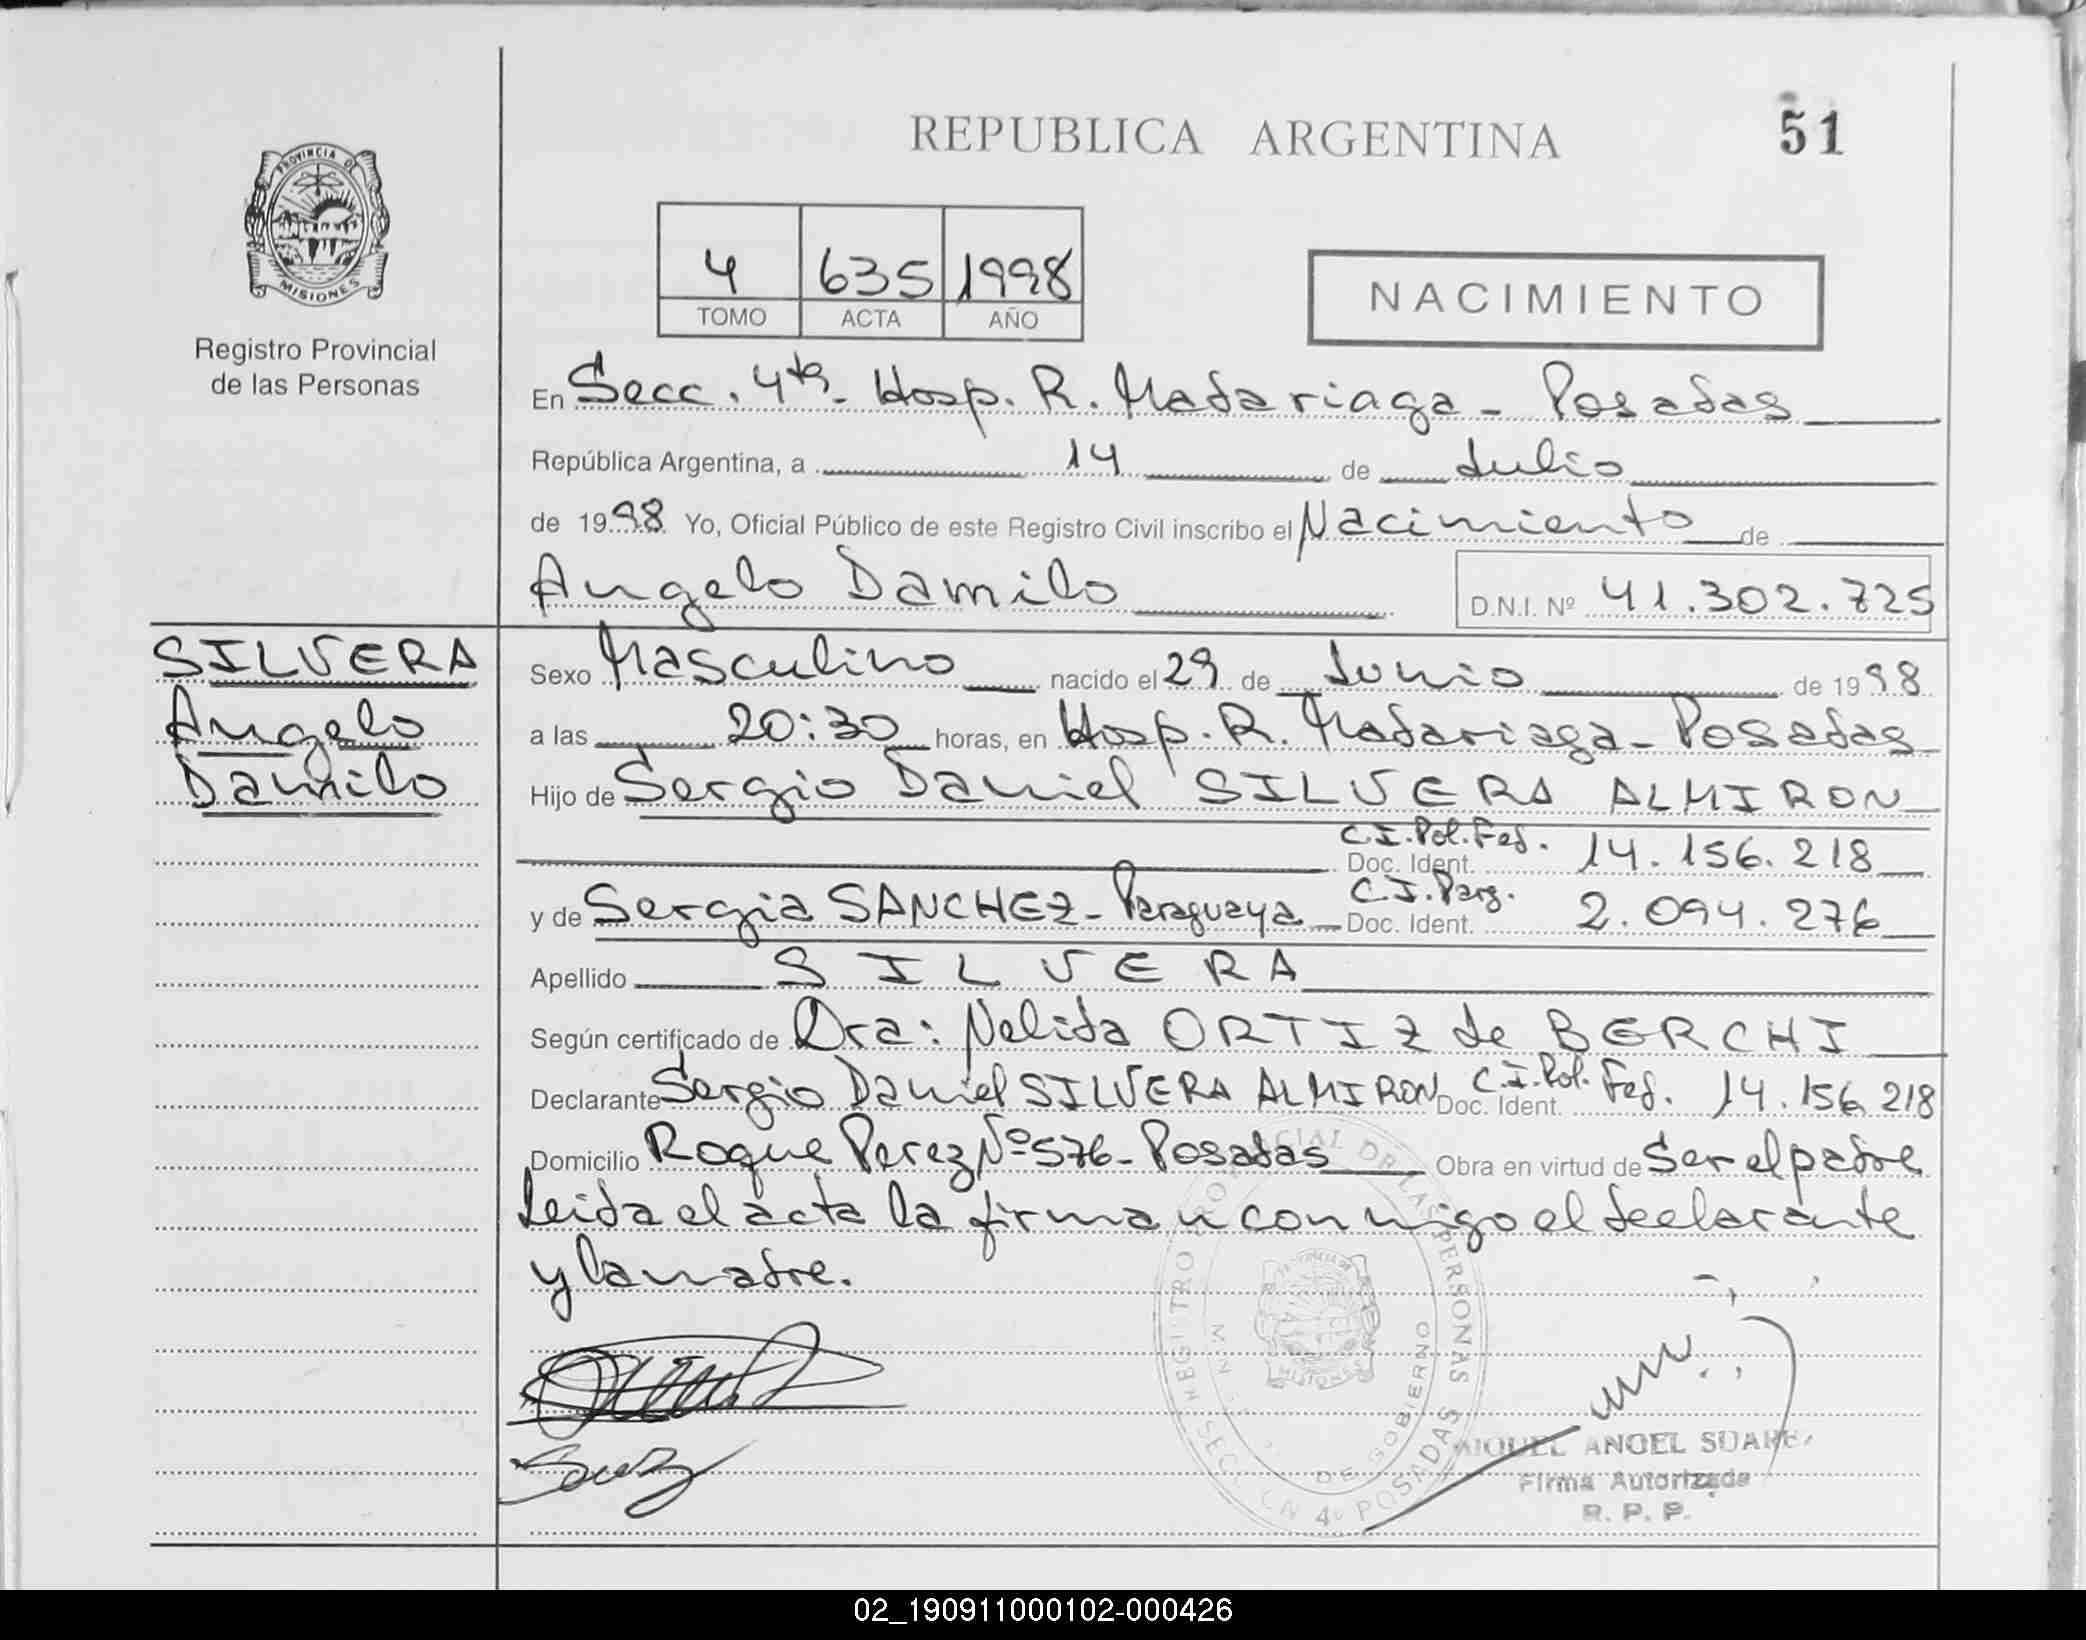 REPUBLICA ARGENTINA
51
PROVINCIA DE
MISIONES
Registro Provincial
de las Personas
4 635 1998
TOMO ACTA AÑO
NACIMIENTO
En Secc. 4ta - Hosp. R. Madariaga - Posadas
República Argentina, a 14 de Julio
de 1998 Yo, Oficial Público de este Registro Civil inscribo el Nacimiento de
Angelo Damilo D.N.I. Nº 41.302.725
SILVERA
Angelo
Damilo
Sexo Masculino nacido el 29 de Junio de 1998
a las 20:30 horas, en Hosp. R. Madariaga - Posadas
Hijo de Sergio Daniel SILVERA ALMIRON
C.I. Pol. Fed.
Doc. Ident. 14.156.218
y de Sergia SANCHEZ - Paraguaya C.I. Parg. Doc. Ident. 2.094.276
Apellido SILVERA
Según certificado de Dra: Nelida ORTIZ de BERCHI
Declarante Sergio Daniel SILVERA ALMIRON C.I. Pol. Fed. Doc. Ident. 14.156.218
Domicilio Roque Perez Nº 576 - Posadas Obra en virtud de Ser el padre
Leida el acta la firman conmigo el declarante
y la madre.
REGISTRO PROVINCIAL DE LAS PERSONAS
DE GOBIERNO
SECCION 4º POSADAS
MISIONES
MIGUEL ANGEL SUAREZ
Firma Autorizada
R. P. P.
02_190911000102-000426